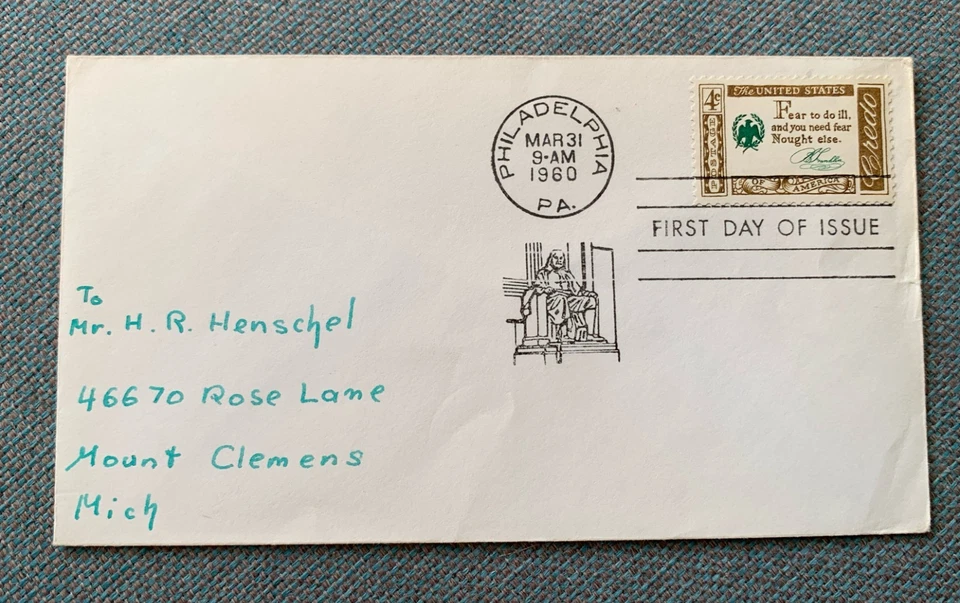 PHILADELPHIA
MAR 31
9-AM
1960
PA.
4¢
The UNITED STATES
Fear to do ill,
and you need fear
Nought else.
B Franklin
Credo
OF AMERICA
FIRST DAY OF ISSUE
To
Mr. H. R. Henschel
46670 Rose Lane
Mount Clemens
Mich